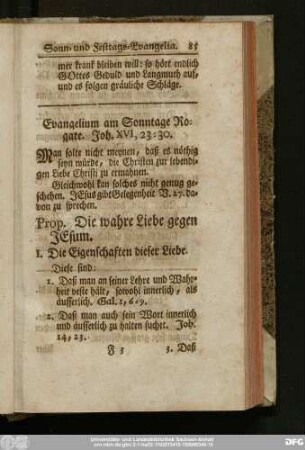 Sonn- und Festtags-Evangelia. 85
mer krank bleiben will: so hört endlich
GOttes Geduld und Langmuth auf,
und es folgen gräuliche Schläge.
Evangelium am Sonntage Ro-
gate. Joh. XVI, 23-30.
Man solte nicht meynen, daß es nöthig
seyn würde, die Christen zur lebendi-
gen Liebe Christi zu ermahnen.
Gleichwohl kan solches nicht genug ge-
schehen. JEsus gibt Gelegenheit V. 27. da-
von zu sprechen.
Prop. Die wahre Liebe gegen
JEsum.
I. Die Eigenschaften dieser Liebe.
Diese sind:
1. Daß man an seiner Lehre und Wahr-
heit veste hält, sowohl innerlich, als
äusserlich. Gal. 1, 6-9.
2. Daß man auch sein Wort innerlich
und äusserlich zu halten suchet. Joh.
14, 23.
F 3 3. Daß
Universitäts- und Landesbibliothek Sachsen-Anhalt
DFG